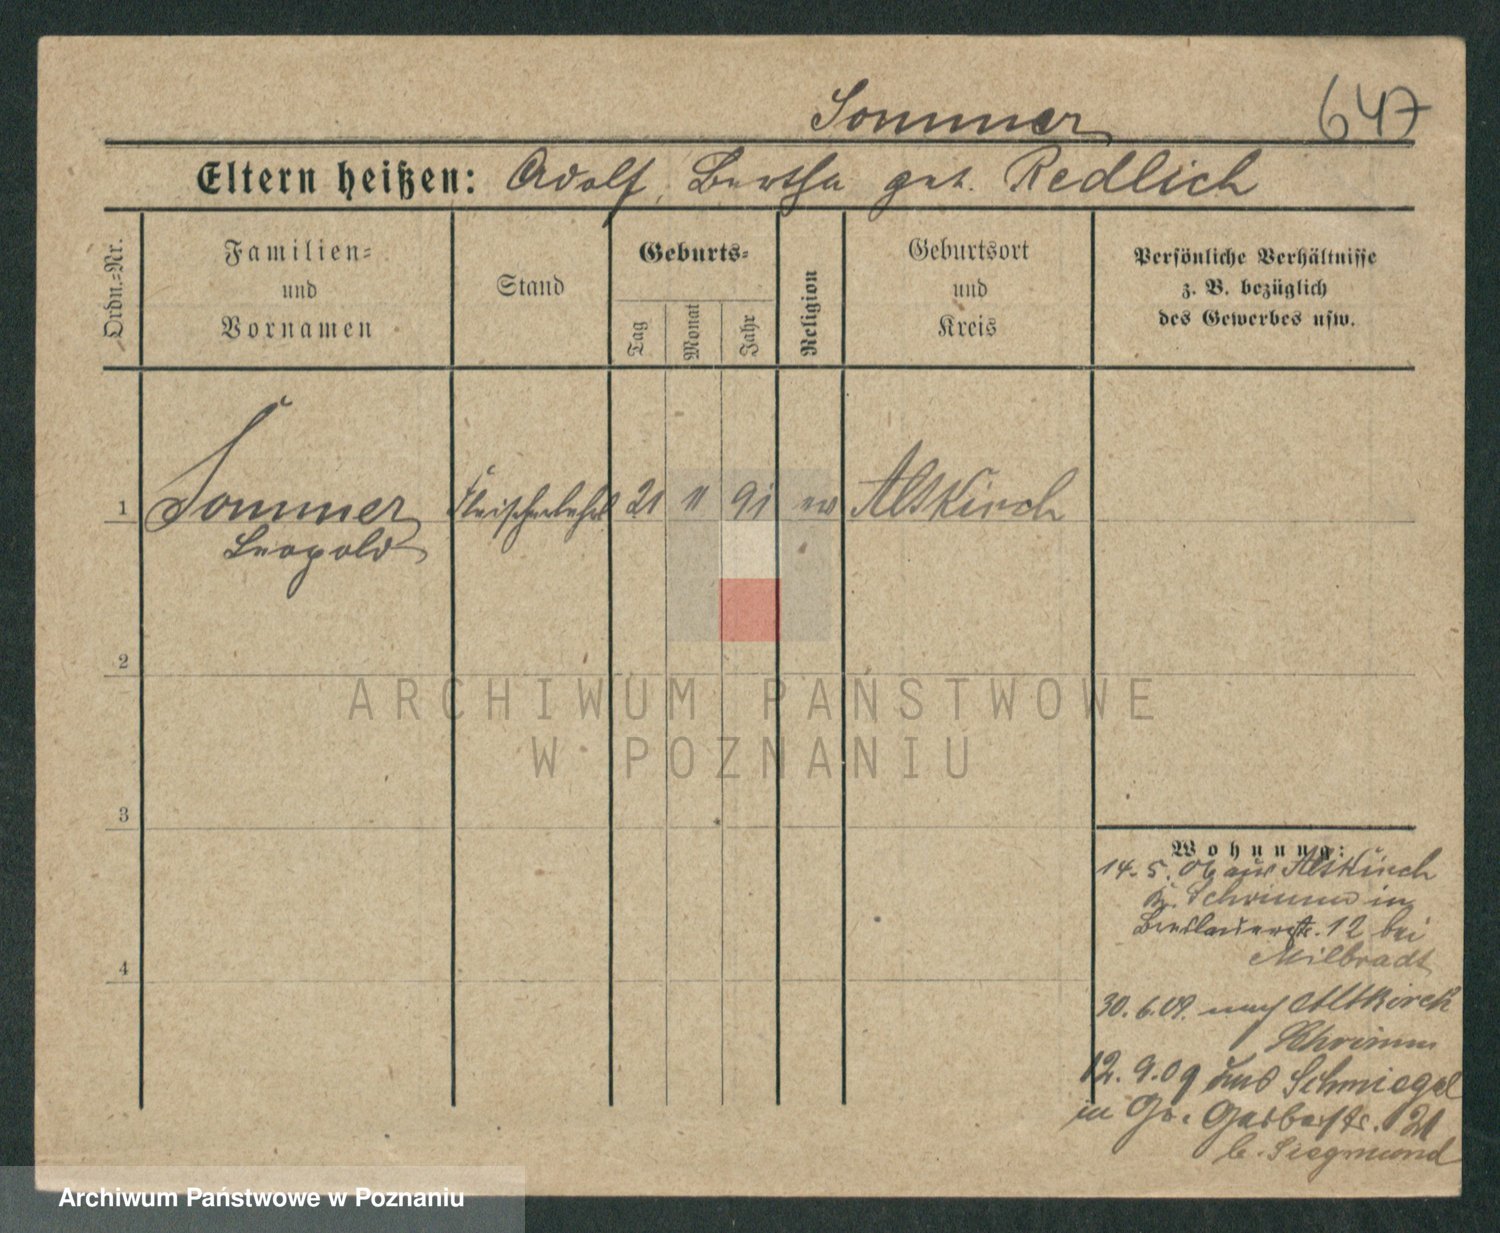 Sommer
647
Eltern heißen: Adolf, Bertha geb. Redlich
Ordn.-Nr.
Familien-
und
Vornamen
Stand
Geburts-
Tag
Monat
Jahr
Religion
Geburtsort
und
Kreis
Persönliche Verhältnisse
z. B. bezüglich
des Gewerbes usw.
1
Sommer
Leopold
Fleischerlehrl
21
11
91
ev
Altkirch
2
3
4
Wohnung:
14. 5. 06 aus Altkirch
Kr. Schrimm in
Breslauerstr. 12 bei
Milbradt
30. 6. 09. nach Altkirch
Schrimm
12. 9. 09 aus Schmiegel
in Gr. Gerberstr. 21
b. Siegmund
ARCHIWUM PAŃSTWOWE
W POZNANIU
Archiwum Państwowe w Poznaniu